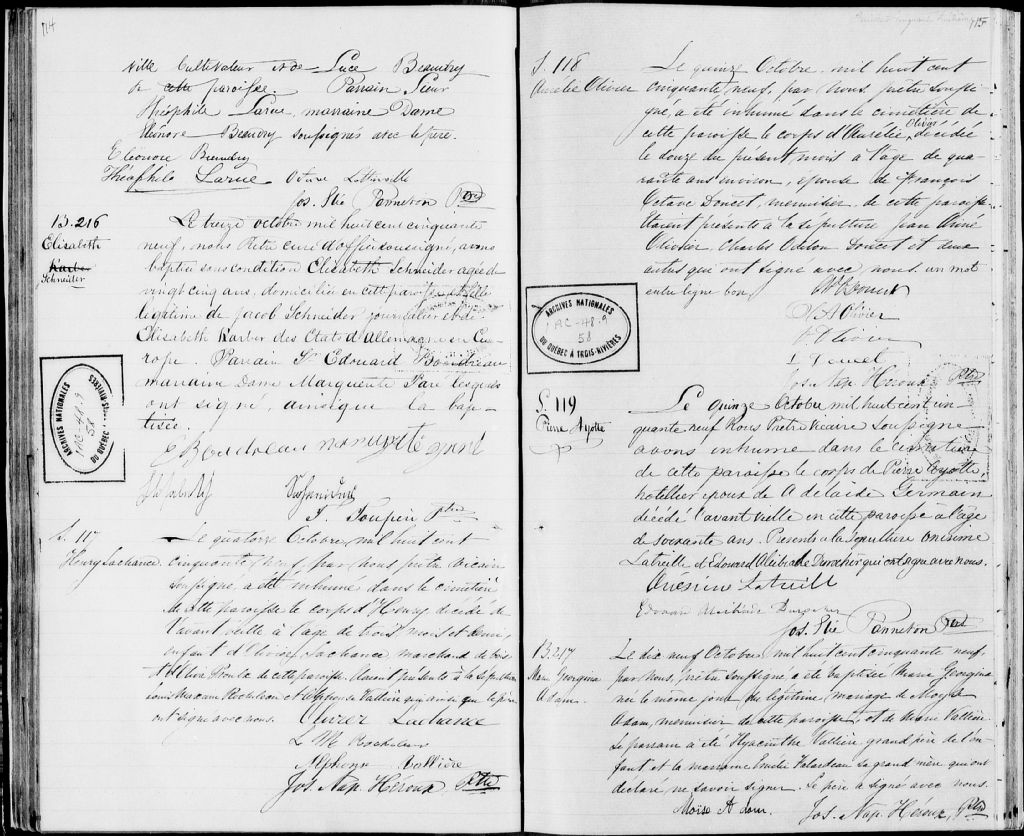 714
ville Cultivateur et de Luce Beaudry
de cette paroisse. Parrain Sieur
Théophile Larue, marraine Dame
Eléonore Beaudry soussignés avec le père.
Eléonore Beaudry
Théophile Larue
Jos. Elie Panneton Ptre
B. 216
Elisabeth
Karber
Schneider
Le treize octobre mil huit cent cinquante
neuf, nous Pretre curé d'office soussigné, avons
baptisé sous condition Elisabeth Schneider agée de
vingt cinq ans, domiciliée en cette paroisse et fille
legitime de Jacob Schneider journalier et de
Elisabeth Karber des Etats d'allemagne en Eu-
rope. Parrain Sr Edouard Boudreau
marraine Dame Marguerite Paré lesquels
ont signé, ainsi que la bap-
tisée.
E Boudreau
T. Toupin Ptre
ARCHIVES NATIONALES
1AC-48-9
58
DU QUÉBEC À TROIS-RIVIÈRES
S. 117
Henry Lachance
Le quatorze Octobre, mil huit cent
cinquante neuf, par nous prêtre vicaire
soussigné, a été inhumé dans le cimetière
de cette paroisse le corps d'Henry décédé de
l'avant veille à l'age de trois mois et demi,
enfant d'Olivier Lachance marchand de bois
et d'Olive Proulx de cette paroisse. Etaient présents à la sépulture
Louis Macaire Rocheleau et Alphonse Vallière qui ainsi que le père
ont signé avec nous.
Olivier Lachance
L M Rocheleau
Alphonse Vallière
Jos. Nap. Héroux Ptre
715
S. 118
Aurélie Olivier
Le quinze Octobre mil huit cent
cinquante neuf, par nous prêtre soussi-
gné, a été inhumé dans le cimetière de
cette paroisse le corps d'Aurélie Olivier, décédée
le douze du présent mois à l'age de qua-
rante ans environ, épouse de François
Octave Doucet, menuisier de cette paroisse
Etaient présents à la sépulture Jean
Olivier, Charles Odilon Doucet et deux
autres qui ont signé avec nous. un mot
entre ligne bon.
Olivier
Doucet
Jos. Nap. Héroux Ptre
ARCHIVES NATIONALES
1AC-48-9
58
DU QUÉBEC À TROIS-RIVIÈRES
S. 119
Pierre Ayotte
Le Quinze Octobre mil huit cent cin-
quante neuf Nous Pretre Vicaire Soussigné
avons inhumé dans le cimetière
de cette paroisse le corps de Pierre Ayotte,
hotellier epoux de Adelaïde Germain
décédé l'avant veille en cette paroisse a l'age
de soixante ans. Presents a la Sepulture Onesime
Latreille et Edouard Desrocher qui ont signé avec nous.
Onesime Latreille
Jos. Elie Panneton Ptre
B. 217
Marie Georgina
Adam.
Le dix neuf Octobre, mil huit cent cinquante neuf
par nous, prêtre soussigné a été baptisée Marie Georgina
née le même jour du légitime mariage de Moyse
Adam, menuisier de cette paroisse, et de Marie Vallière.
Le parrain a été Hyacinthe Vallière grand père de l'en-
fant et la marraine Emélie Valardeau sa grand mère qui ont
déclaré ne savoir signer. Le père a signé avec nous.
Moïse Adam. Jos. Nap. Héroux, Ptre